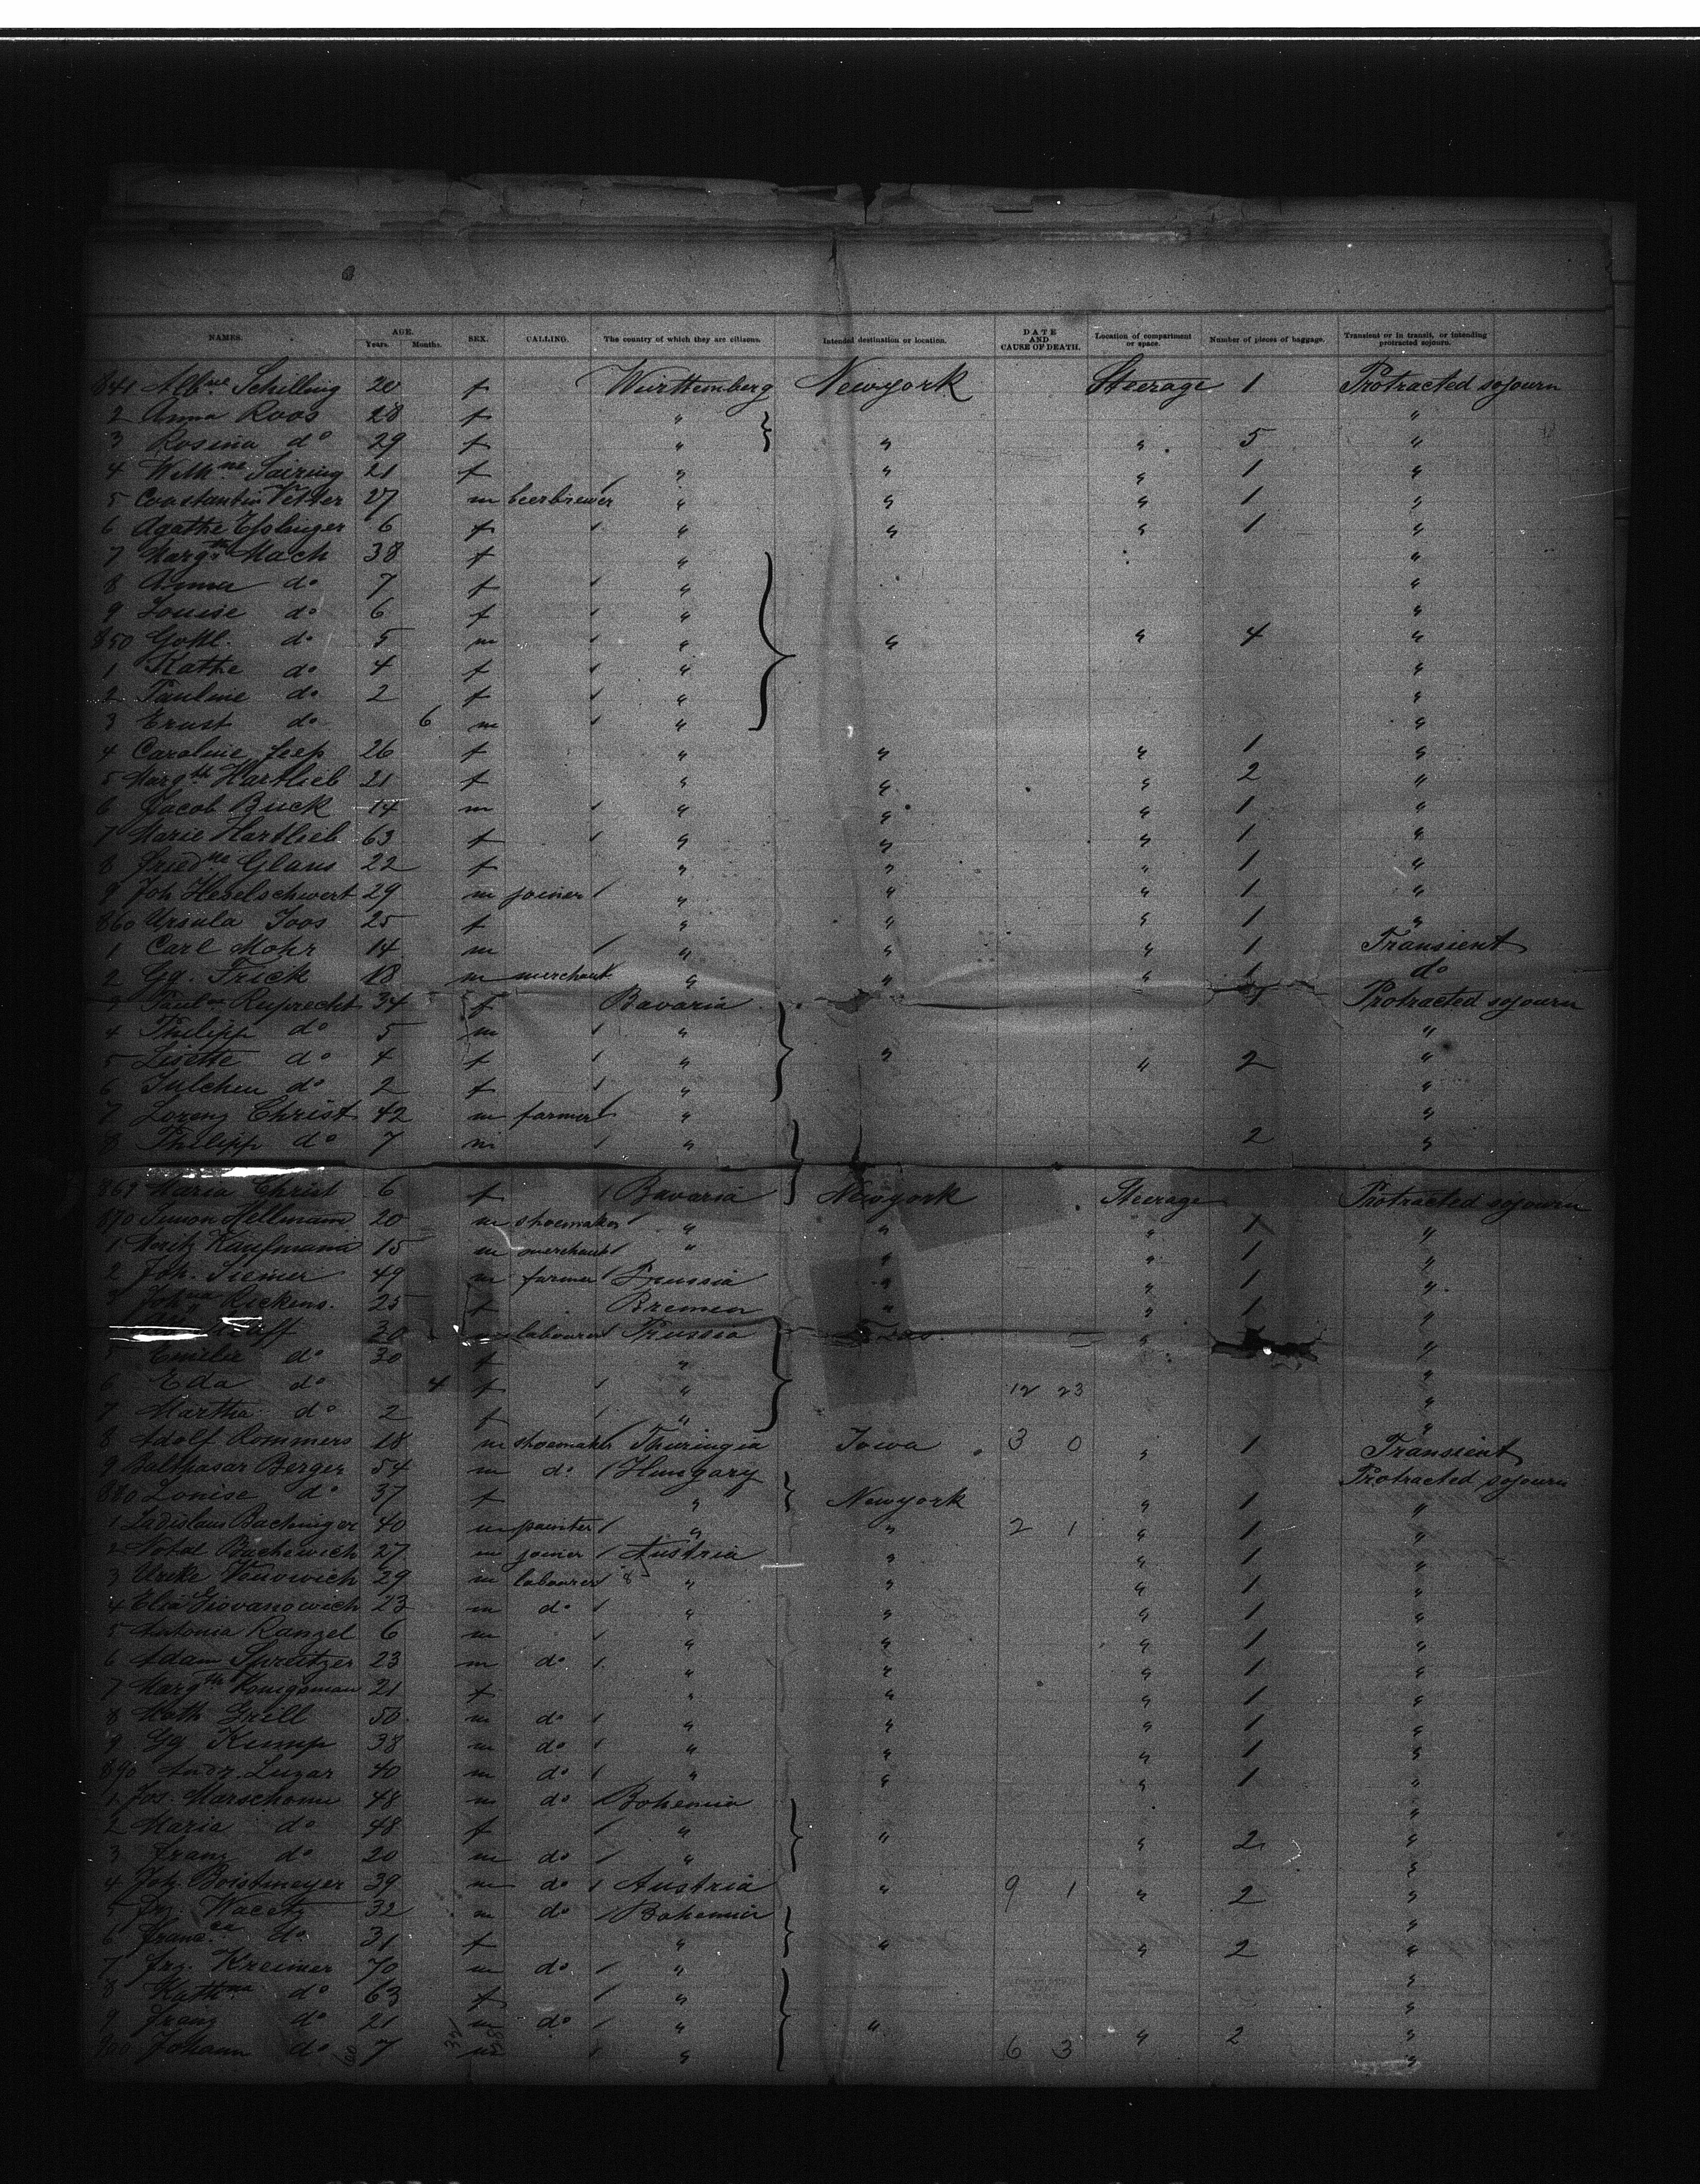 NAMES. AGE. Years. Months. SEX. CALLING. The country of which they are citizens. Intended destination or location. DATE AND CAUSE OF DEATH. Location of compartment or space. Number of pieces of baggage. Transient or in transit, or intending protracted sojourn.
841 Albne Schilling 20 f Württemberg Newyork Steerage 1 Protracted sojourn
2 Anna Roos 28 f " "
3 Rosina do 29 f " " " 5 "
4 Wilhne 21 f " " " 1 "
5 Constantin Vetter 27 m beerbrewer " " " 1 "
6 Agathe Esslinger 6 f " " " 1 "
7 Margth Mach 38 f " "
8 Anna do 7 f " "
9 Louise do 6 f " "
850 Gottl. do 5 m " " " 4 "
1 Kathe do 4 f " "
2 Pauline do 2 f " "
3 Ernst do 6 m " "
4 Caroline Jeep 26 f " " " 1 "
5 Margth Hartlieb 21 f " " " 2 "
6 Jacob Buck 14 m " " " 1 "
7 Marie Hartlieb 63 f " " " 1 "
8 Friedne Glaus 22 f " " " 1 "
9 Joh Heselschwert 29 m joiner " " " 1 "
860 Ursula Joos 25 f " " " 1 "
1 Carl Mohr 14 m " " " 1 Transient
2 Gg. Frick 18 m merchant " " " 1 do
3 Paula Ruprecht 34 f Bavaria Protracted sojourn
4 Philipp do 5 m " "
5 Lisette do 4 f " " " 2 "
6 Julchen do 2 f " "
7 Lorenz Christ 42 m farmer " "
8 Philipp do 7 m " 2 "
869 Maria Christ 6 f Bavaria Newyork Steerage Protracted sojourn
870 Simon Hellmann 20 m shoemaker " " " 1 "
1 Moritz Kaufmann 15 m merchant " " " 1 "
2 Joh. Siemer 49 m farmer Prussia " " 1 "
3 Johna Rickens. 25 f Bremen " " 1 "
30 m labourer Prussia " "
5 Emilie do 30 f " "
6 Eda do 4 f " 12 23 "
7 Martha do 2 f " "
8 Adolf Rommers 18 m shoemaker Thuringia Iowa 3 0 " 1 Transient
9 Balthasar Berger 54 m do Hungary Protracted sojourn
880 Louise do 37 f " Newyork " 1 "
1 Ladislaus Bachinger 40 m painter " " 2 1 " 1 "
2 Notal Bachewich 27 m joiner Austria " " 1 "
3 29 m labourer " " " 1 "
4 Elia Giovanowich 23 m do " " " 1 "
5 Antonia Ranzel 6 m " " " 1 "
6 Adam Spreitzer 23 m do " " " 1 "
7 Margth Konigsman 21 f " " " 1 "
8 Math Grill 50 m do " " " 1 "
9 Gg Kump 38 m do " " " 1 "
890 Andr. Luzar 40 m do " " " 1 "
1 Jos. 48 m do Bohemia "
2 Maria do 48 f " " " 2 "
3 Franz do 20 m do " "
4 Joh. Boistmeyer 39 m do Austria " 9 1 " 2 "
5 Frz. 32 m do Bohemia "
6 Franca do 31 f " " " 2 "
7 Frz. Kreimer 70 m do " "
8 Kathna do 63 f " "
9 Franz do 21 m do " " "
900 Johann do 7 m " 6 3 " 2 "